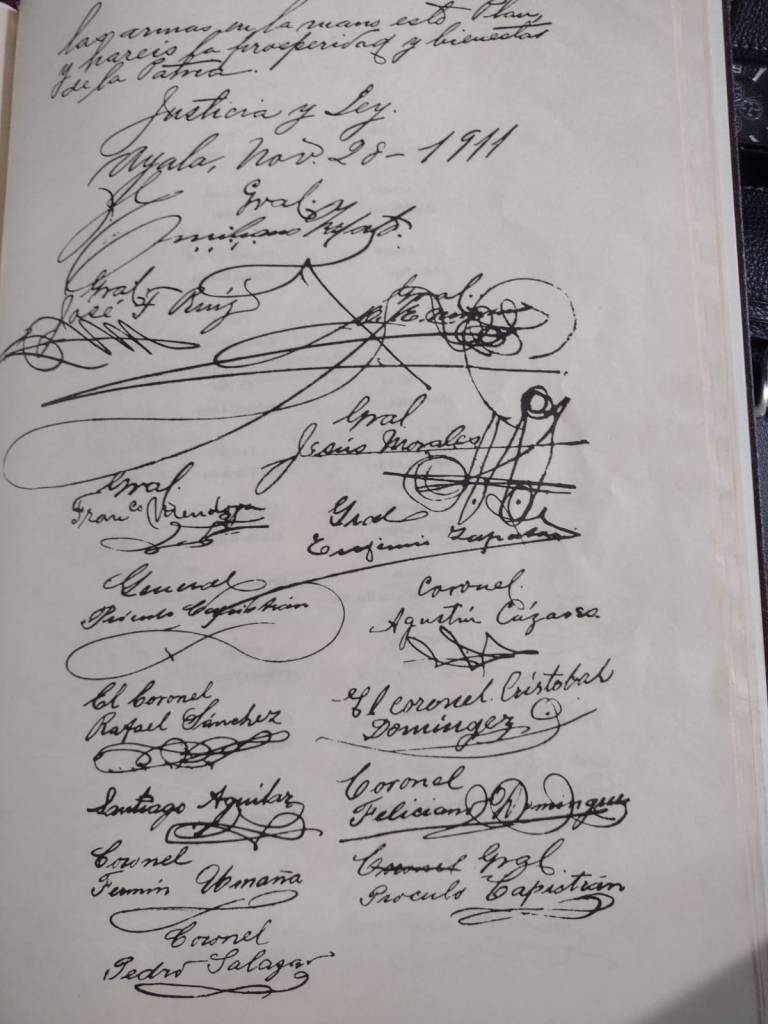 las armas en la mano este Plan,
y hareis la prosperidad y bienestar
de la Patria.
Justicia y Ley.
Ayala, Nov. 28-1911
Gral.
Emiliano Zapata.
Gral.
José F Ruiz
Gral.
O. E. Montaño
Gral
Jesús Morales
Gral.
Franco. Mendoza
Gral
Eufemio Zapata
General
Próculo Capistrán
Coronel
Agustín Cázares
El Coronel
Rafael Sánchez
El coronel. Cristobal
Domíngez
Santiago Aguilar
Coronel
Feliciano Dominguez
Coronel
Fermín Omaña
Coronel Gral.
Proculo Capistrán
Coronel
Pedro Salazar